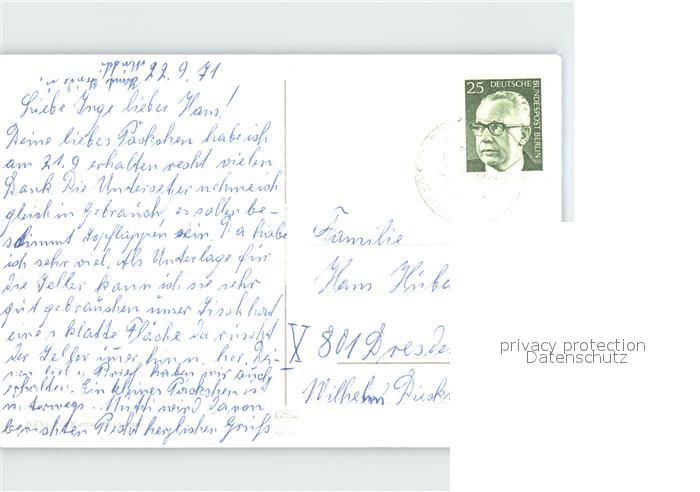 22.9.71
Liebe Inge lieber Hans!
Deine liebes Päckchen habe ich
am 21.9 erhalten recht vielen
Dank. Die Untersetzer nehme ich
gleich in Gebrauch, es sollen be-
stimmt Topflappen sein. Da habe
ich sehr viel. Als Unterlage für
die Teller kann ich sie sehr
gut gebrauchen unser Tisch hat
eine glatte Fläche da rutscht
der Teller immer hin u. her. Dei-
nen lieben Brief haben wir auch
erhalten. Ein kleines Päckchen ist
unterwegs. Mutti wird davon
berichten Recht herzlichen Gruß
25 DEUTSCHE
BUNDESPOST BERLIN
Familie
Hans Hüba
X 801 Dresde
Wilhelm Dieck
privacy protection
Datenschutz